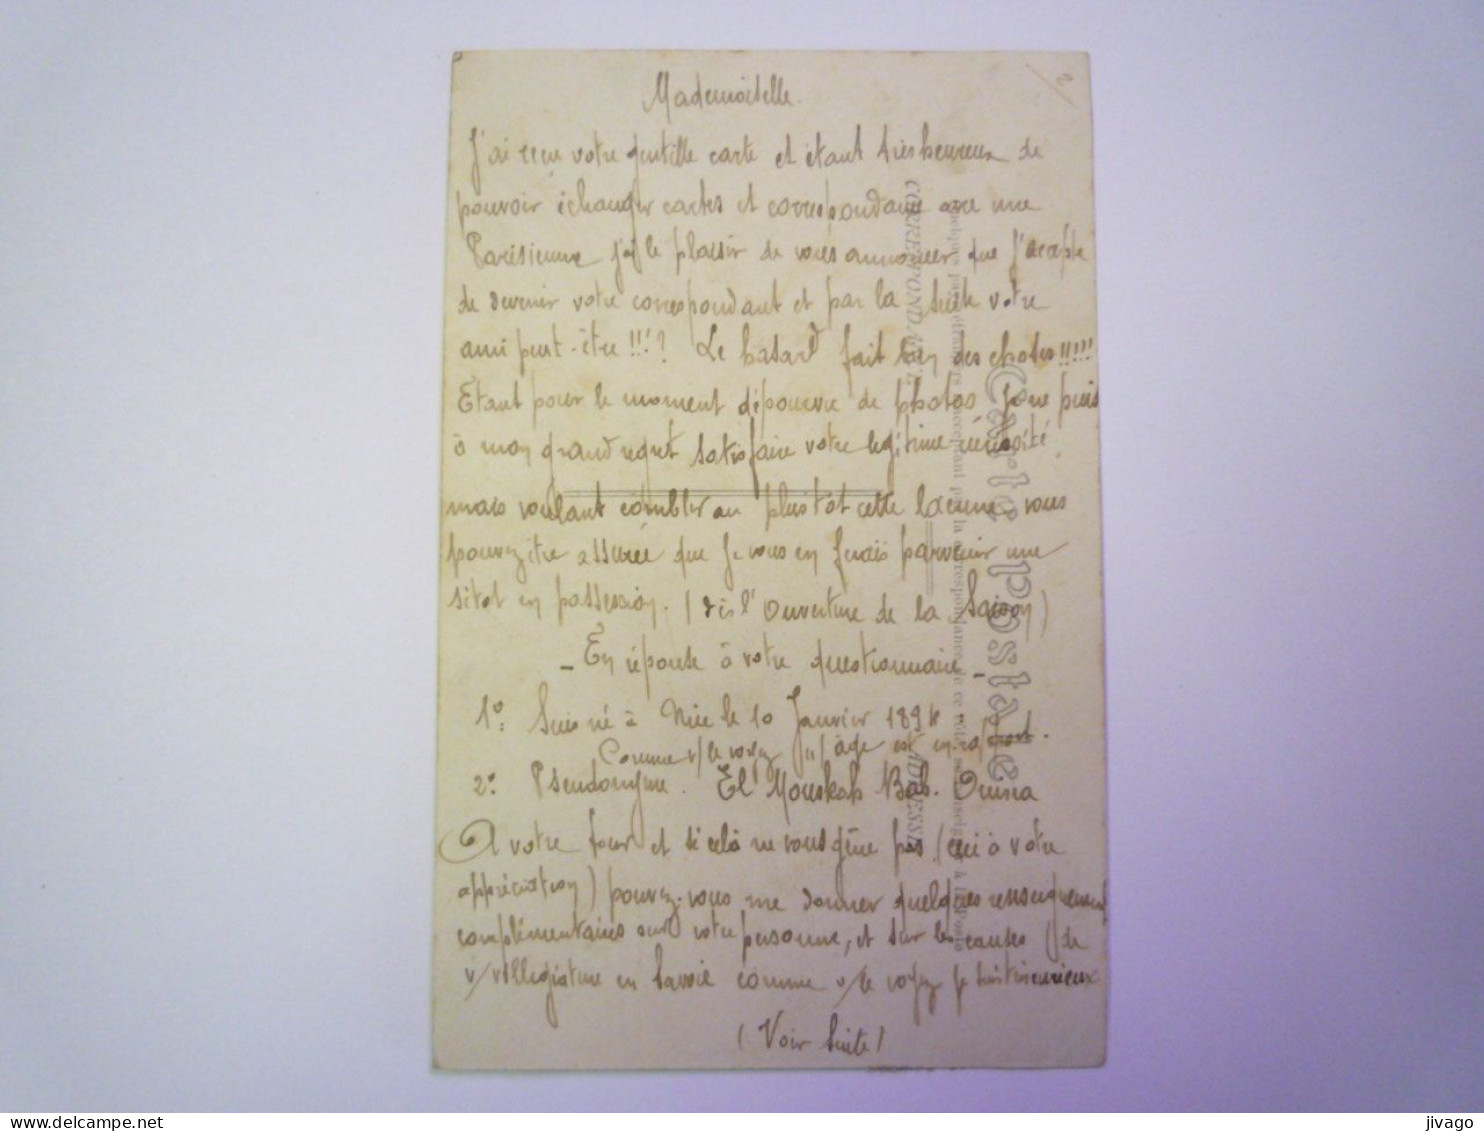 Mademoiselle.
J'ai reçu votre gentille carte et étant très heureux de
pouvoir échanger cartes et correspondance avec une
Parisienne j'ai le plaisir de vous annoncer que j'accepte
de devenir votre correspondant et par la suite votre
ami peut-être !!!? Le hasard fait bien des choses !!!!!
Etant pour le moment dépourvu de photos je ne puis
à mon grand regret satisfaire votre légitime curiosité
mais voulant combler au plus tôt cette lacune, vous
pouvez être assurée que je vous en ferais parvenir une
sitot en possession. (dès l'Ouverture de la Saison)
- En réponse à votre questionnaire -
1º: Suis né à Nice le 10 Janvier 1894
Comme v/ le voyez m/ âge est en rapport.
2º Pseudonyme. El Mouskah Bab. Ouisra
A votre tour et si celà ne vous gêne pas (ceci à votre
appréciation) pouvez-vous me donner quelques renseignements
complémentaires sur votre personne, et sur les causes (de
v/ villégiature en Savoie comme v/ le voyez je suis très curieux
(Voir Suite)
Carte Postale
CORRESPONDANCE
ADRESSE
2
jivago